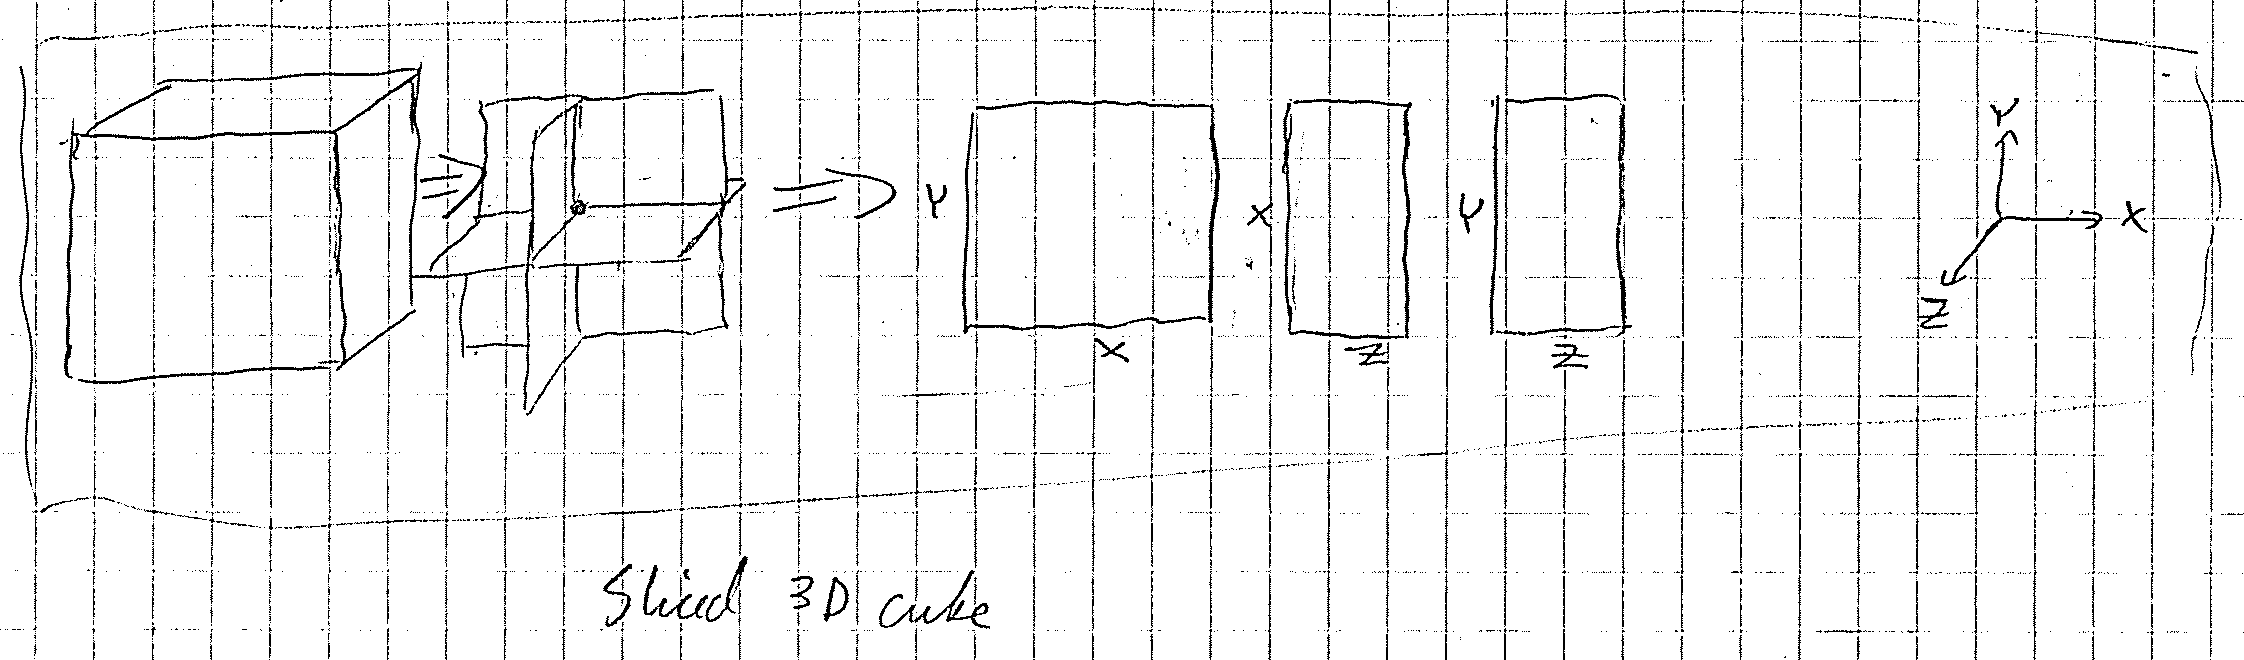 Y
X
X
Z
Y
Z
Y
X
Z
Sliced 3D cube